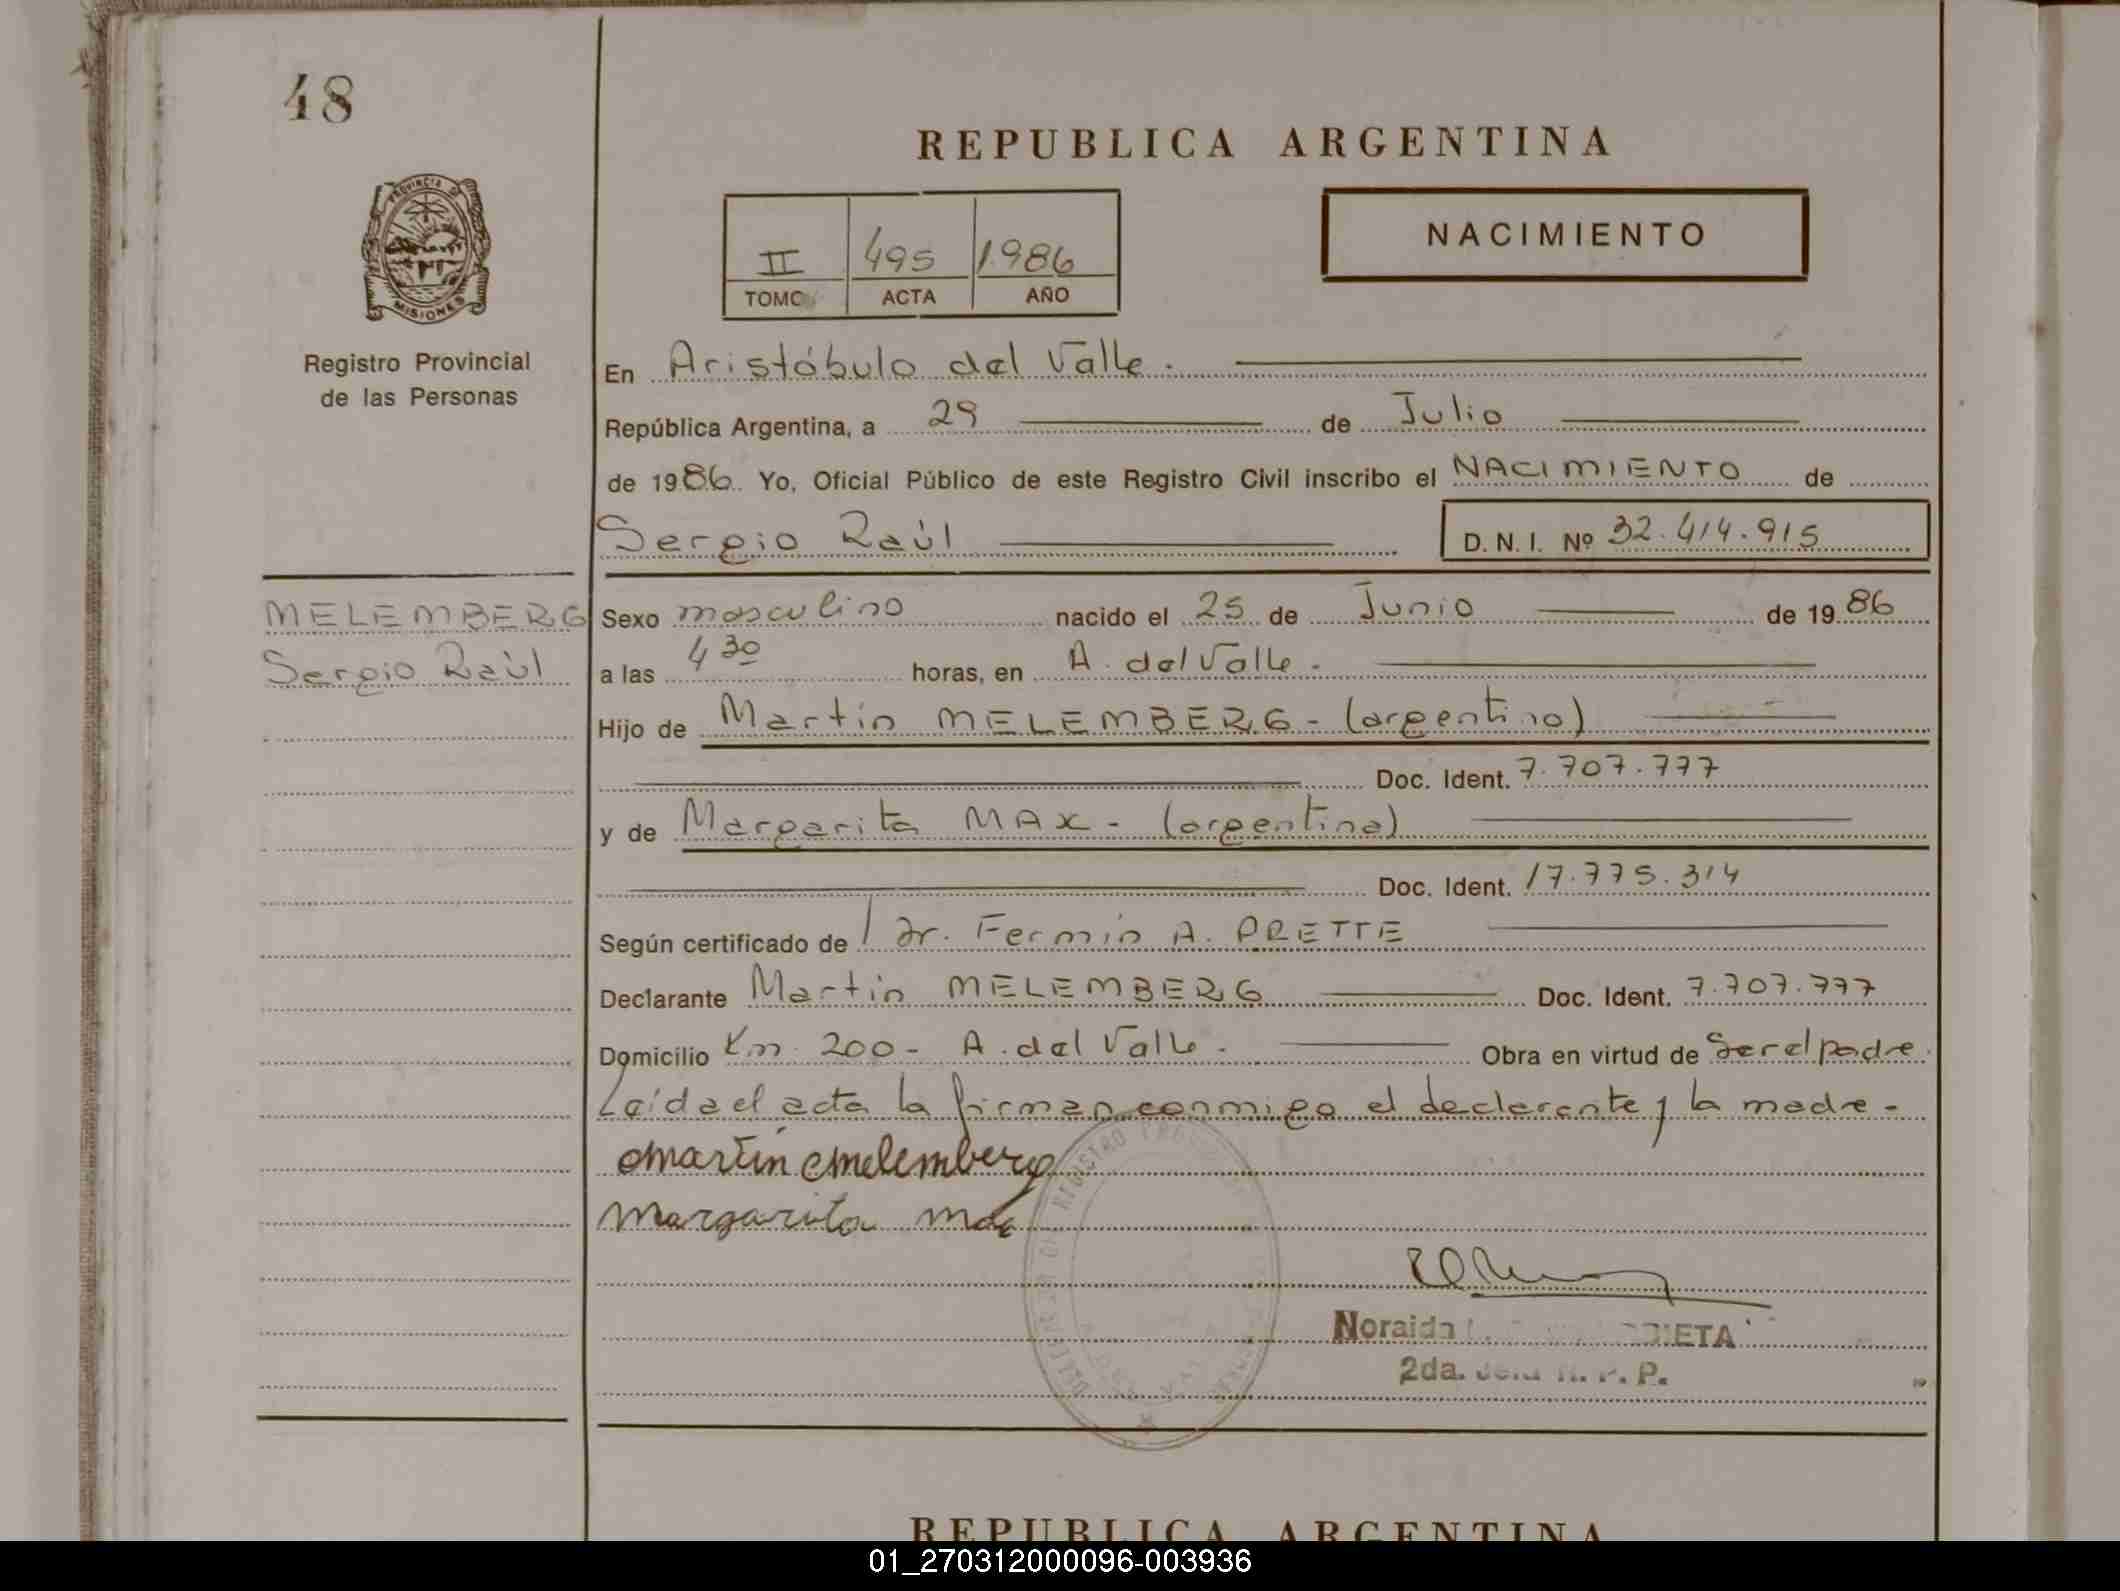 48
REPUBLICA ARGENTINA
PROVINCIA DE
MISIONES
II 495 1.986
TOMO ACTA AÑO
NACIMIENTO
Registro Provincial
de las Personas
En Aristóbulo del Valle.
República Argentina, a 29 de Julio
de 1986. Yo, Oficial Público de este Registro Civil inscribo el NACIMIENTO de
Sergio Raúl D. N. I. Nº 32.414.915
MELEMBERG
Sergio Raúl
Sexo masculino nacido el 25 de Junio de 1986
a las 4 30 horas, en A. del Valle.
Hijo de Martín MELEMBERG - (argentino)
Doc. Ident. 7.707.777
y de Margarita MAX - (argentina)
Doc. Ident. 17.775.314
Según certificado de Dr. Fermín A. PRETTE
Declarante Martín MELEMBERG Doc. Ident. 7.707.777
Domicilio Km 200 - A. del Valle. Obra en virtud de ser el padre
Leída el acta la firman conmigo el declarante y la madre -
Martin Melemberg
Margarita Max
REGISTRO
Noraida
2da. R. P. P.
REPUBLICA ARGENTINA
01_270312000096-003936